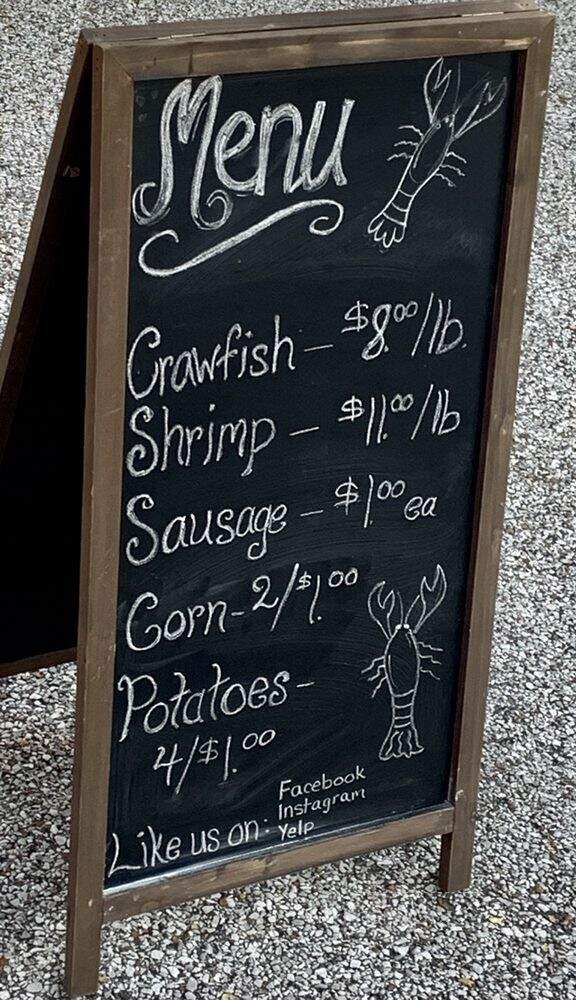 Menu
Crawfish - $8.00/lb.
Shrimp - $11.00/lb
Sausage - $1.00 ea
Corn - 2/$1.00
Potatoes -
4/$1.00
Like us on: Facebook
Instagram
Yelp